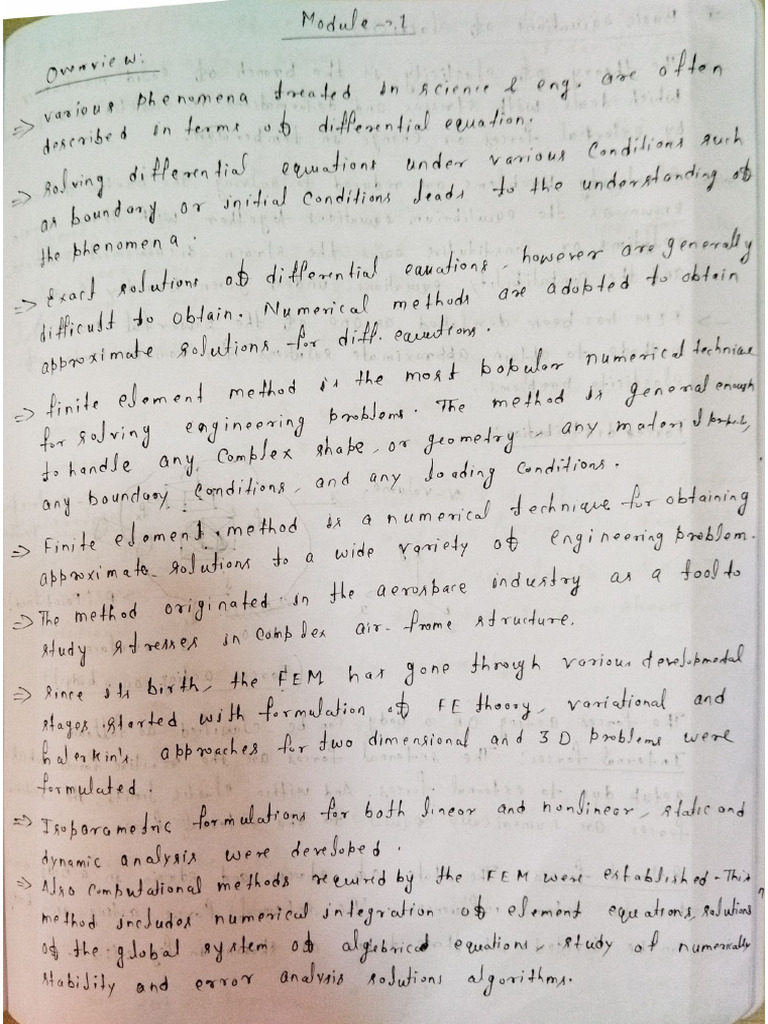 Module - 1
Overview:
⇒ various phenomena treated in science & eng. are often
described in terms of differential equation.
⇒ solving differential equations under various conditions such
as boundary or initial conditions leads to the understanding of
the phenomena.
⇒ Exact solutions of differential equations, however are generally
difficult to obtain. Numerical methods are adopted to obtain
approximate solutions for diff. equations.
⇒ finite element method is the most popular numerical technique
for solving engineering problems. The method is general enough
to handle any complex shape, or geometry, any material
any boundary conditions, and any loading conditions.
⇒ Finite element method is a numerical technique for obtaining
approximate solutions to a wide variety of engineering problem.
⇒ The method originated in the aerospace industry as a tool to
study stresses in complex air-frame structure.
⇒ since its birth, the FEM has gone through various developmental
stages started with formulation of FE theory, variational and
Galerkin's approaches for two dimensional and 3D problems were
formulated.
⇒ Isoparametric formulations for both linear and nonlinear, static and
dynamic analysis were developed.
⇒ Also computational methods required by the FEM were established. This
method includes numerical integration of element equations, solutions
of the global system of algebrical equations, study of numerically
stability and error analysis solutions algorithms.